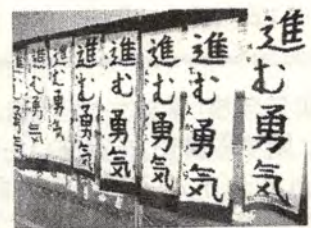 進む勇気
進む勇気
進む勇気
進む勇気
進む勇気
進む勇気
進む勇気
進む勇気